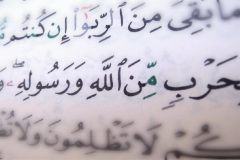 مَا بَقِىَ مِنَ ٱلرِّبَوٰٓا۟ إِن كُنتُم
بِحَرْبٍ مِّنَ ٱللَّهِ وَرَسُولِهِۦ ۖ
كُمْ لَا تَظْلِمُونَ وَلَا تُظْ